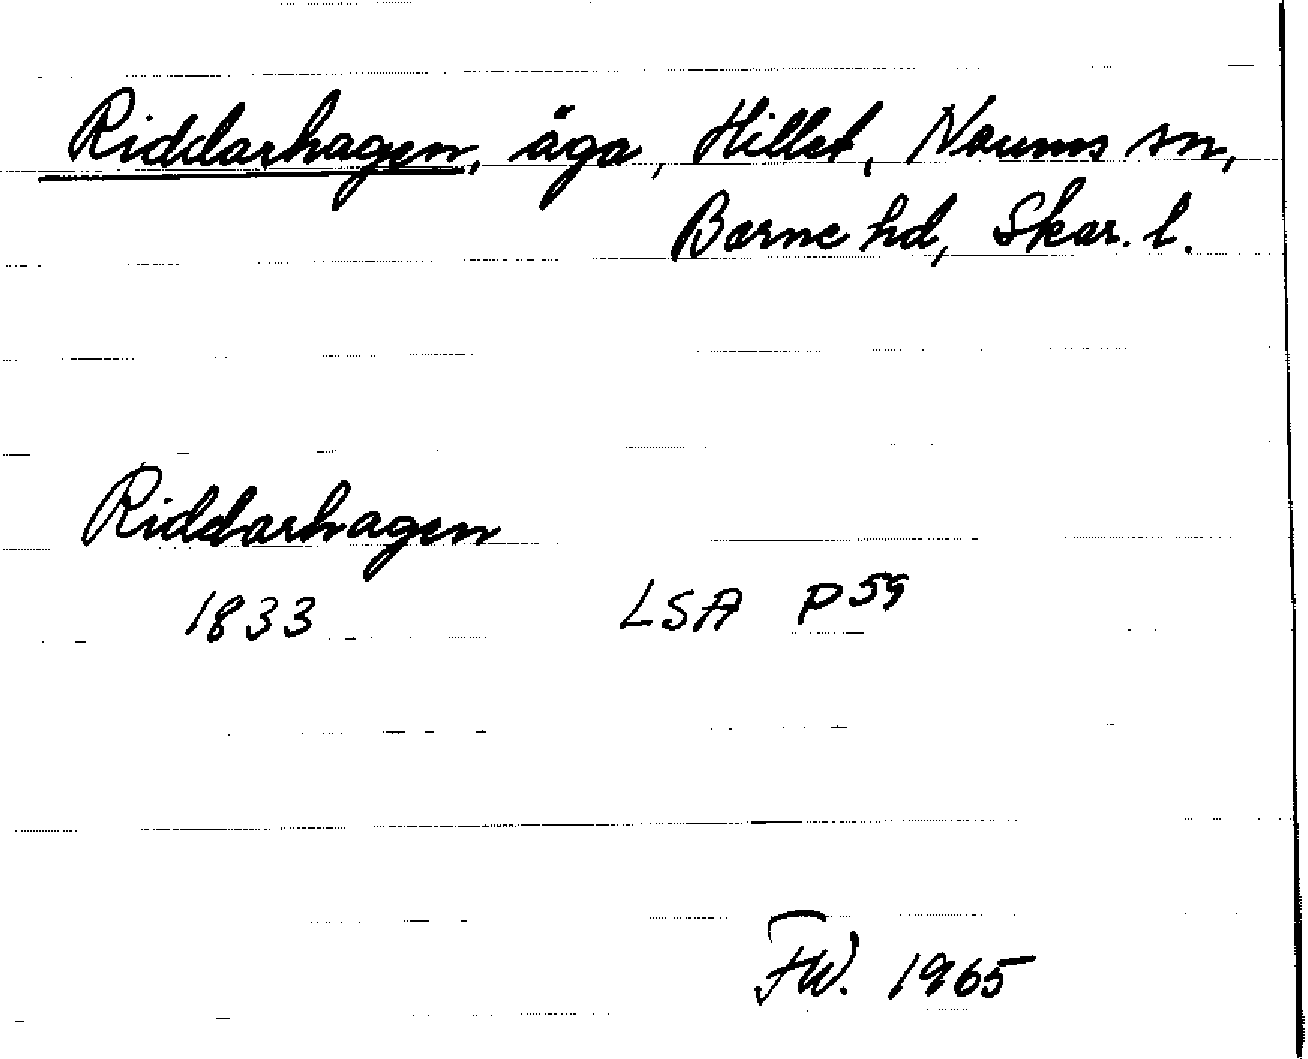 Riddarhagen, äga, Hillet, Naums sn,
Barne hd, Skar. l.
Riddarhagen
1833 LSA P 59
FW. 1965